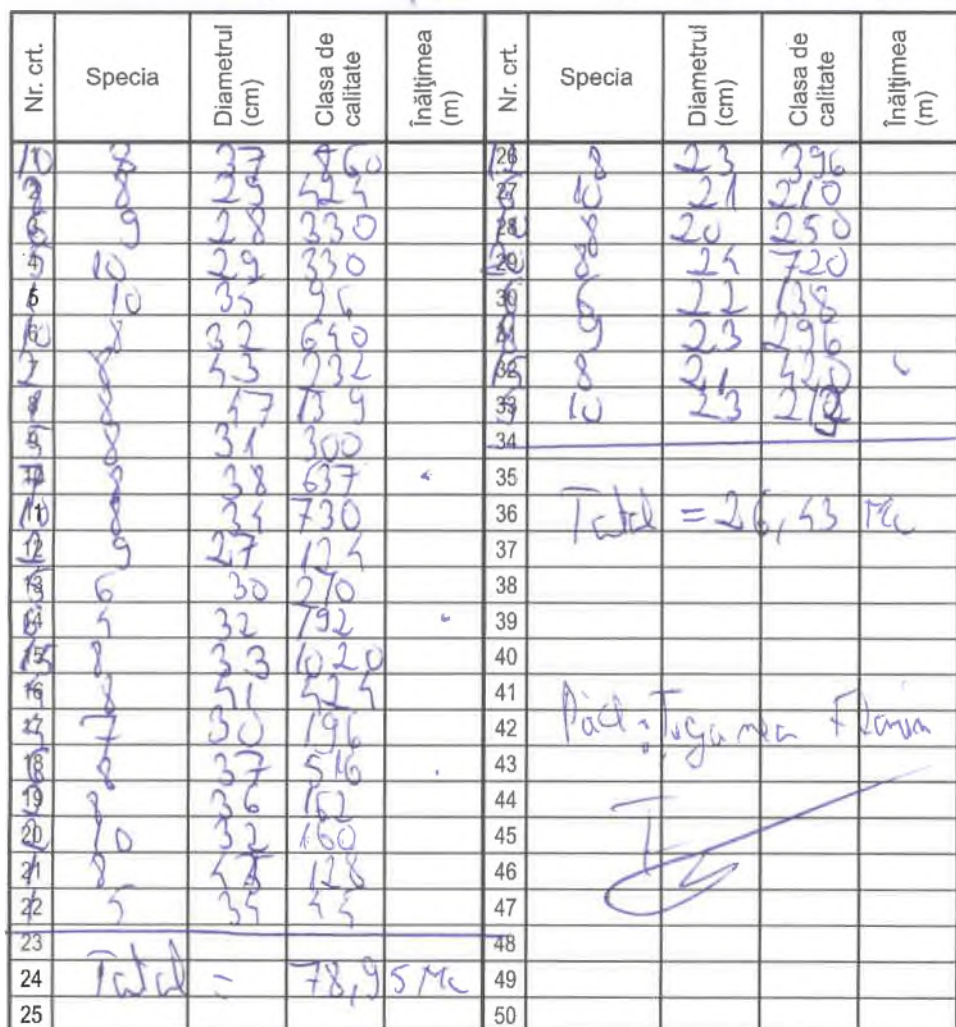 Nr. crt. Specia Diametrul (cm) Clasa de calitate Înălţimea (m) Nr. crt. Specia Diametrul (cm) Clasa de calitate Înălţimea (m)
10 8 37 860 26 8 23 396
8 29 424 27 10 21 210
9 28 330 28 8 20 250
4 10 29 330 29 8 24 720
10 35 96 30 6 22 138
10 8 32 640 9 23 296
7 8 43 232 32 8 21 420
8 8 47 139 33 10 23
9 8 31 300 34
10 8 38 637 35
11 8 34 730 36 Total = 26,43 Mc
12 9 27 124 37
13 6 30 270 38
14 5 32 792 39
15 8 33 1020 40
16 8 41 424 41
17 7 30 196 42
18 8 37 516 43
19 8 36 162 44
20 10 32 160 45
21 8 128 46
22 5 34 44 47
23 48
24 Total = 78,95 Mc 49
25 50